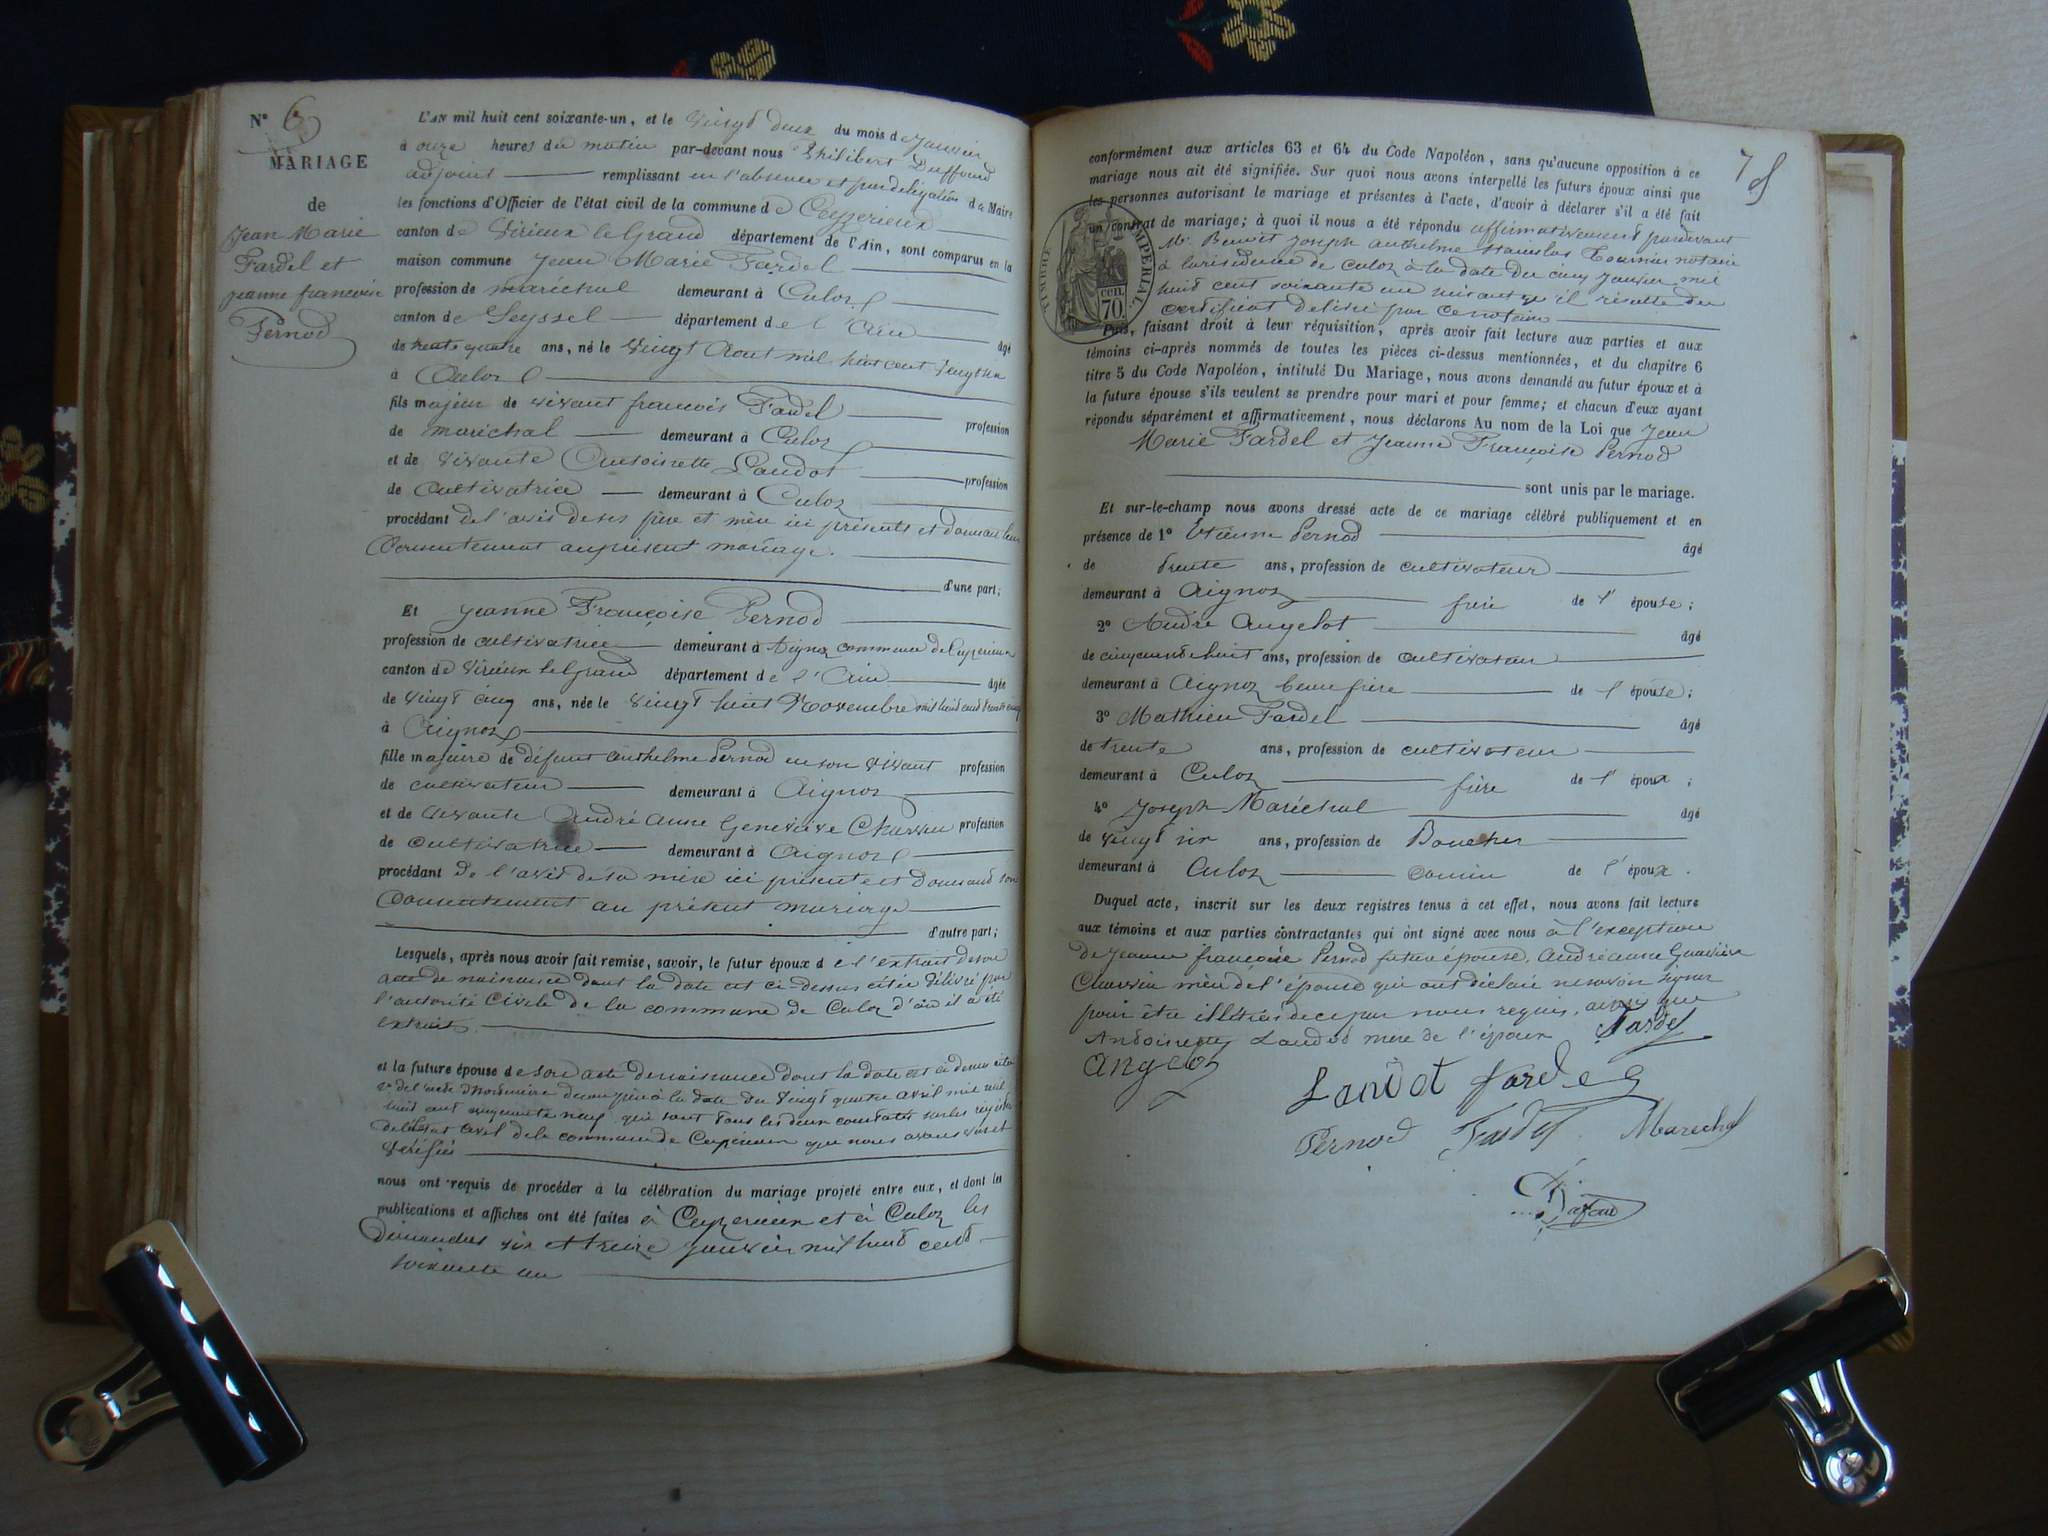 N° 6
MARIAGE
de
Jean Marie
Fardel et
jeanne francoise
Pernod
L'AN mil huit cent soixante-un, et le vingt deux du mois de Janvier
à onze heures du matin par-devant nous Philibert Duffourd
adjoint remplissant en l'absence et par délégation du Maire
les fonctions d'Officier de l'état civil de la commune de Ceyzerieux
canton de Virieux le Grand département de l'Ain, sont comparus en la
maison commune Jean Marie Fardel
profession de maréchal demeurant à Culoz
canton de Seyssel département de l'Ain âgé
de trente quatre ans, né le vingt Aout mil huit cent vingt six
à Culoz
fils majeur de vivant francois Fardel profession
de maréchal demeurant à Culoz
et de vivante Antoinette Landot profession
de cultivatrice demeurant à Culoz
procédant de l'avis de ses père et mère ici présents et donnant leur
Consentement au présent mariage.
d'une part;
Et Jeanne Françoise Pernod
profession de cultivatrice demeurant à Aignoz commune de Ceyzerieux
canton de Virieux le Grand département de l'Ain âgée
de vingt cinq ans, née le vingt huit Novembre mil huit cent trente cinq
à Aignoz
fille majeure de défunt Anthelme Pernod en son vivant profession
de cultivateur demeurant à Aignoz
et de vivante André Anne Geneviève Chassin profession
de cultivatrice demeurant à Aignoz
procédant de l'avis de sa mère ici présente et donnant son
Consentement au présent mariage
d'autre part;
Lesquels, après nous avoir fait remise, savoir, le futur époux de l'extrait de son
acte de naissance dont la date est ci-dessus citée délivré par
l'autorité Civile de la commune de Culoz d'où il a été
extrait
et la future épouse de son acte de naissance dont la date est ci dessus citée
de l'acte mortuaire de son père à la date du vingt quatre avril mil
huit cent cinquante neuf qui sont tous les deux constatés sur les registres
de l'état civil de la commune de Ceyzerieux que nous avons
vérifiés
nous ont requis de procéder à la célébration du mariage projeté entre eux, et dont les
publications et affiches ont été faites à Ceyzerieux et à Culoz les
Dimanches six et treize janvier mil huit cent
soixante un
78
conformément aux articles 63 et 64 du Code Napoléon, sans qu'aucune opposition à ce
mariage nous ait été signifiée. Sur quoi nous avons interpellé les futurs époux ainsi que
les personnes autorisant le mariage et présentes à l'acte, d'avoir à déclarer s'il a été fait
un contrat de mariage; à quoi il nous a été répondu affirmativement pardevant
Mr Benoit Joseph Anthelme Stanislas Tournier notaire
à la résidence de Culoz à la date du cinq janvier mil
huit cent soixante un suivant qu'il résulte du
certificat délivré par ce notaire
TIMBRE IMPERIAL
70 cen.
Puis, faisant droit à leur réquisition, après avoir fait lecture aux parties et aux
témoins ci-après nommés de toutes les pièces ci-dessus mentionnées, et du chapitre 6
titre 5 du Code Napoléon, intitulé Du Mariage, nous avons demandé au futur époux et à
la future épouse s'ils veulent se prendre pour mari et pour femme; et chacun d'eux ayant
répondu séparément et affirmativement, nous déclarons Au nom de la Loi que Jean
Marie Fardel et Jeanne Françoise Pernod
sont unis par le mariage.
Et sur-le-champ nous avons dressé acte de ce mariage célébré publiquement et en
présence de 1° Etienne Pernod âgé
de trente ans, profession de cultivateur
demeurant à Aignoz frère de l'épouse;
2° André Angelot âgé
de cinquante huit ans, profession de cultivateur
demeurant à Aignoz beau frère de l'épouse;
3° Mathieu Fardel âgé
de trente ans, profession de cultivateur
demeurant à Culoz frère de l'époux;
4° Joseph Maréchal âgé
de vingt six ans, profession de Boucher
demeurant à Culoz cousin de l'époux.
Duquel acte, inscrit sur les deux registres tenus à cet effet, nous avons fait lecture
aux témoins et aux parties contractantes qui ont signé avec nous à l'exception
de Jeanne françoise Pernod future épouse, Andréanne Geneviève
Chassin mère de l'épouse qui ont déclaré ne savoir signer
pour être illétrés de ce par nous requis, ainsi que
Antoinette Landod mère de l'époux Fardel
Angelot
Landot fardel
Pernod Fardel Marechal
Dufour